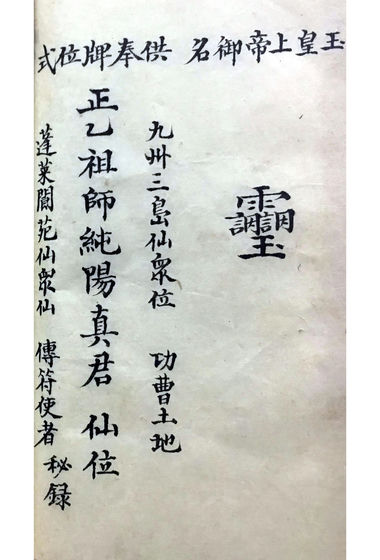 玉皇上帝御名 供奉牌位式
九州三島仙眾位 功曹土地
正乙祖師純陽真君 仙位
蓬萊閬苑仙眾仙 傳符使者 秘録